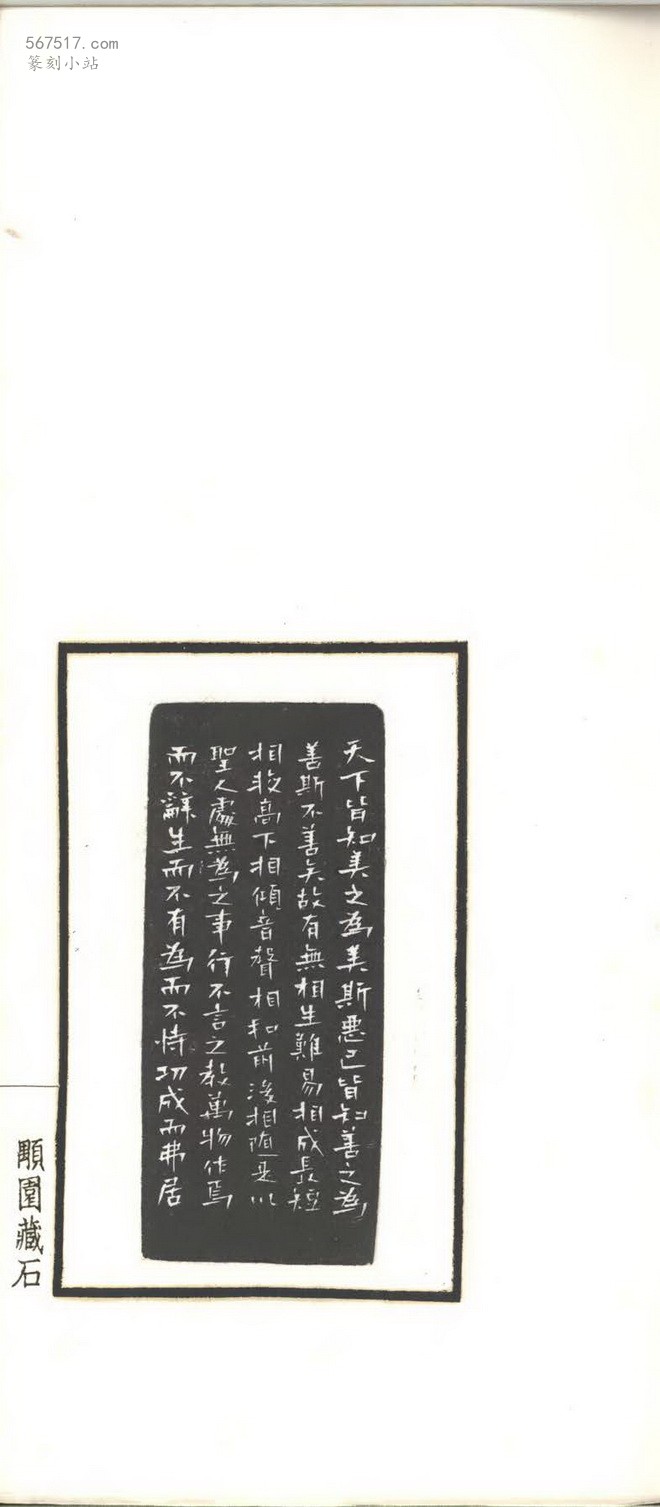 567517.com
篆刻小站
天下皆知美之為美斯惡已皆知善之為
善斯不善矣故有無相生難易相成長短
相較高下相傾音聲相和前後相隨是以
聖人處無為之事行不言之教萬物作焉
而不辭生而不有為而不恃功成而弗居
顒園藏石